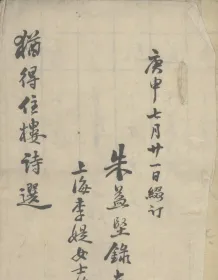 庚申七月廿一日綴訂
朱益堅錄
上海李媞女士
猶得住樓詩選